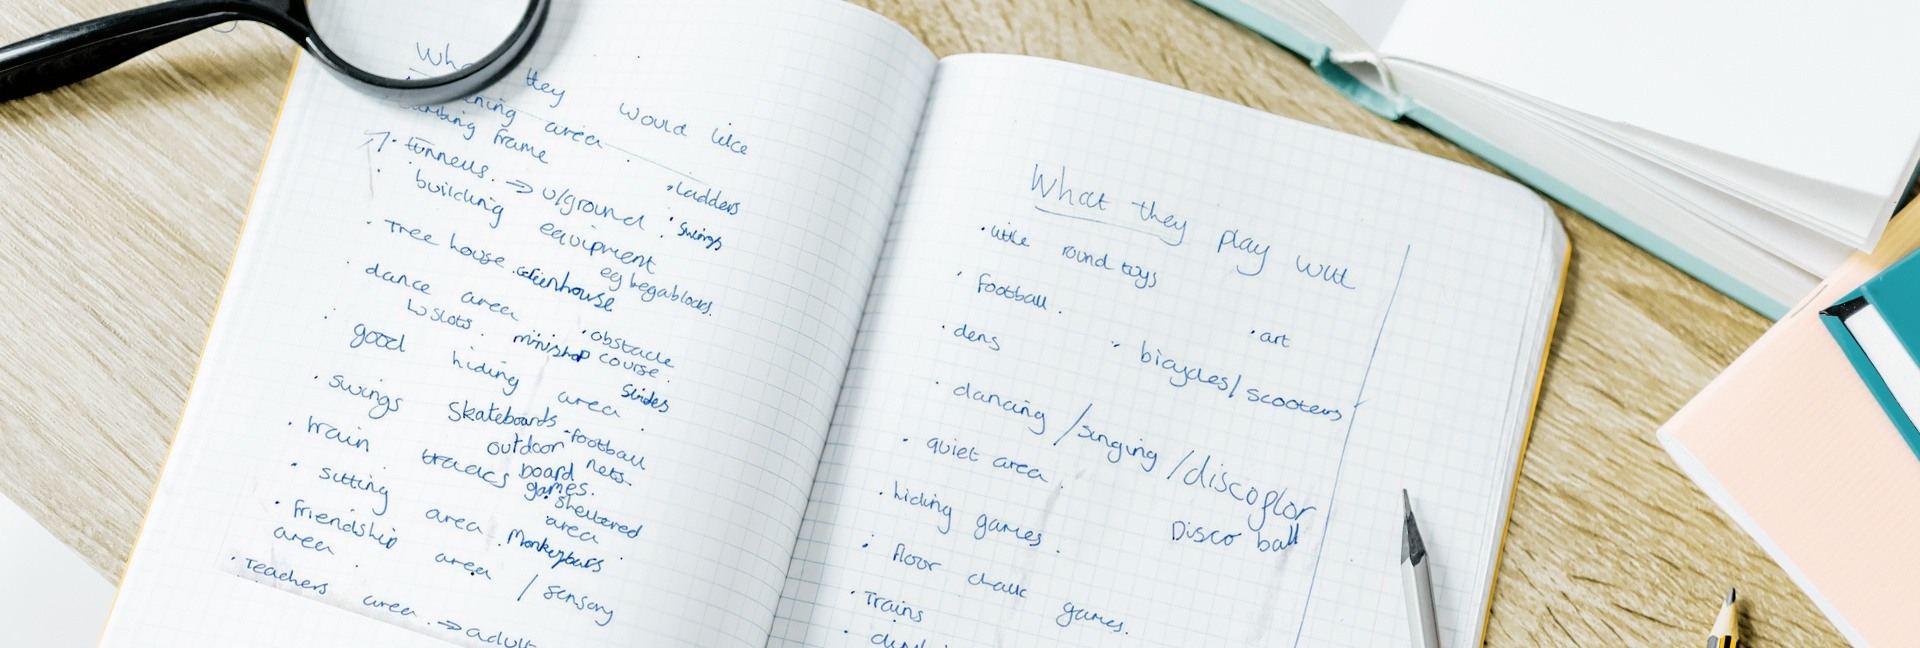 they would like
area
frame
• tunnels. → u/ground
• ladders
• building equipment
• swings
eg begablocks.
• Tree house
• Greenhouse
• dance area
↳ slots.
• obstacle course.
minishop
• good hiding area
Slides
• swings
Skateboards
• football nets.
• train tracks
outdoor board games.
• sitting area
• Sheltered area
• Monkeybars
• friendship area / sensory area
• Teachers area. → adult
What they play with
• little round toys
• football.
• dens
• art
• bicycles/scooters
• dancing /singing /discoflor
Disco ball
• quiet area.
• hiding games.
• floor chalk games.
• Trains